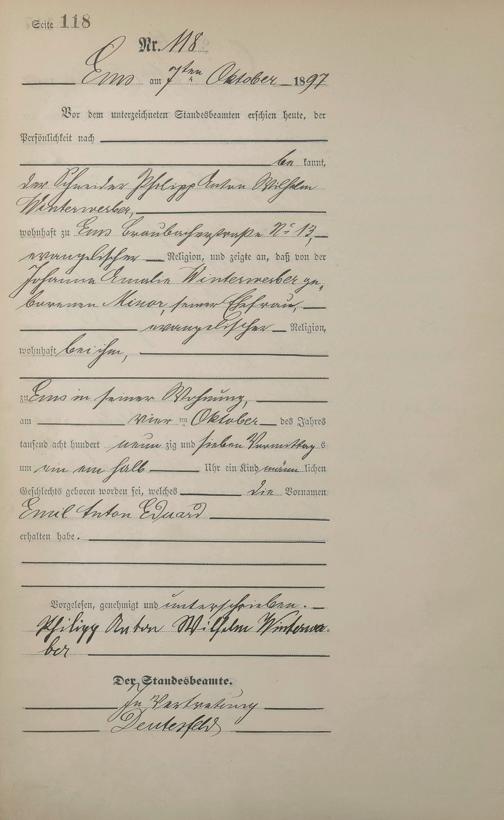 Seite 118
Nr. 118
Ems am 7ten Oktober 1897
Vor dem unterzeichneten Standesbeamten erschien heute, der
Persönlichkeit nach
be kannt,
der Schneider Philipp Anton Wilhelm
Winterwerber,
wohnhaft zu Ems Braubacherstraße No 13,
evangelischer Religion, und zeigte an, daß von der
Johanna Amalie Winterwerber ge„
borenen Minor, seiner Ehefrau,
evangelischer Religion,
wohnhaft bei ihm,
zu Ems in seiner Wohnung,
am vier ten Oktober des Jahres
tausend acht hundert neun zig und sieben Vormittag s
um ein ein halb Uhr ein Kind männ lichen
Geschlechts geboren worden sei, welches die Vornamen
Emil Anton Eduard
erhalten habe.
Vorgelesen, genehmigt und unterschrieben.
Philipp Anton Wilhelm Winterwer-
ber
Der Standesbeamte.
In Vertretung